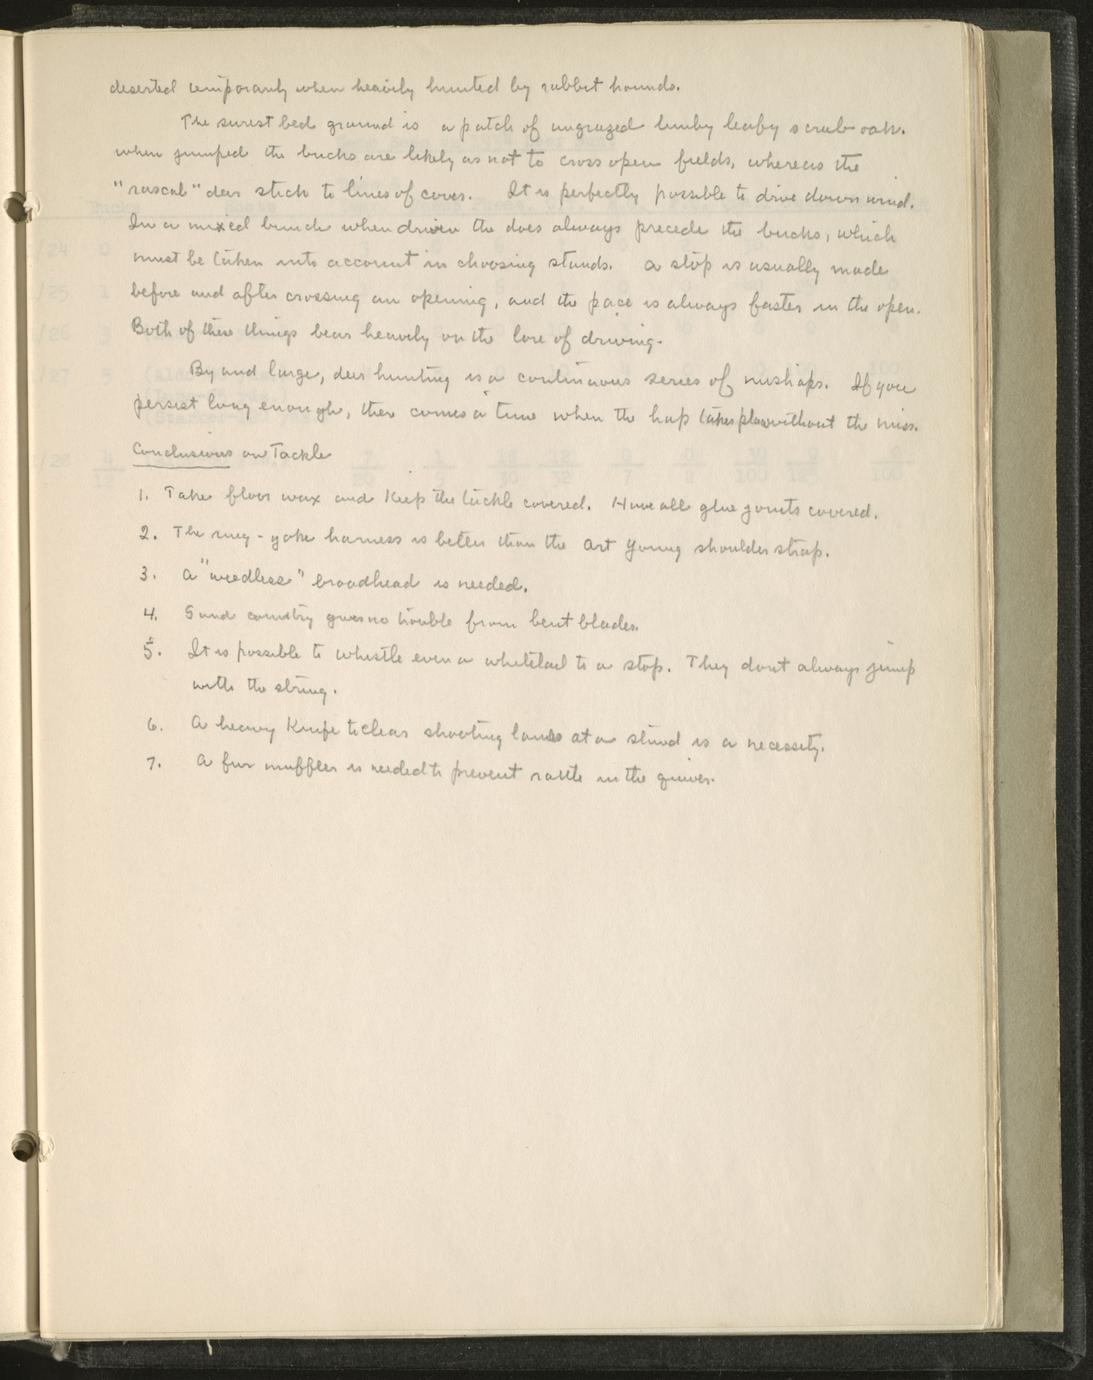 deserted temporarily when heavily hunted by rabbit hounds.
The surest bed ground is a patch of ungrazed limby leafy scrub oak.
when jumped the bucks are likely as not to cross open fields, whereas the
"rascal" deer stick to lines of cover. It is perfectly possible to drive down wind.
In a mixed bunch when driven the does always precede the bucks, which
must be taken into account in choosing stands. A stop is usually made
before and after crossing an opening, and the pace is always faster in the open.
Both of these things bear heavily on the lore of driving.
By and large, deer hunting is a continuous series of mishaps. If you
persist long enough, there comes a time when the hap takes place without the miss.
Conclusions on Tackle
1. Take floor wax and keep the tackle covered. Have all glue joints covered.
2. The yoke harness is better than the Art Young shoulder strap.
3. A "weedless" broadhead is needed.
4. Sand country gives no trouble from bent blades.
5. It is possible to whistle even a whitetail to a stop. They dont always jump
with the string.
6. A heavy Knife to clear shooting lanes at a stand is a necessity.
7. A fur muffler is needed to prevent rattle in the quiver.